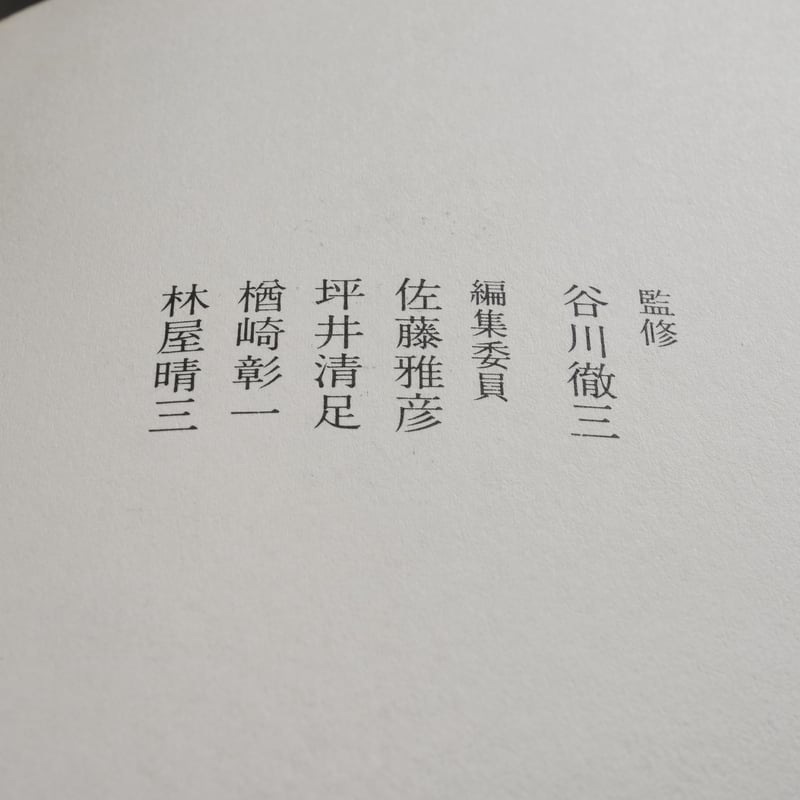 監修
谷川徹三
編集委員
佐藤雅彦
坪井清足
楢崎彰一
林屋晴三